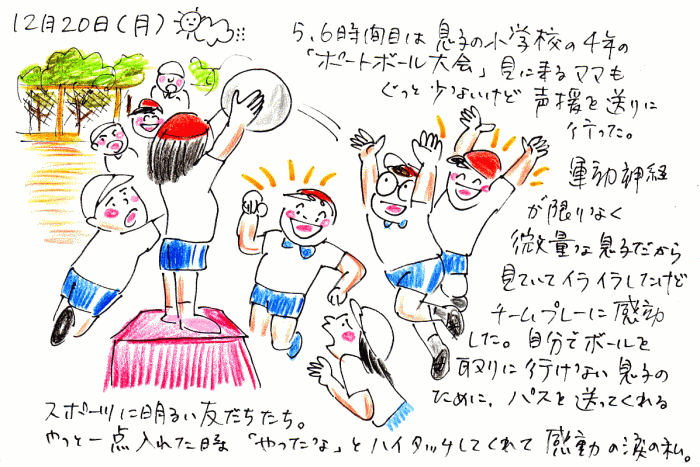 12月20日(月)
5、6時間目は 息子の小学校の4年の
「ポートボール大会」見に来るママも
ぐっと少ないけど 声援を送りに
行った。
運動神経
が限りなく
微量な息子だから
見ていてイライラしたけど
チームプレーに感動
した。自分でボールを
取りに行けない息子の
ために、パスを送ってくれる
スポーツに明るい友だちたち。
やっと一点入れた時 「やったな」とハイタッチしてくれて 感動の涙の私。